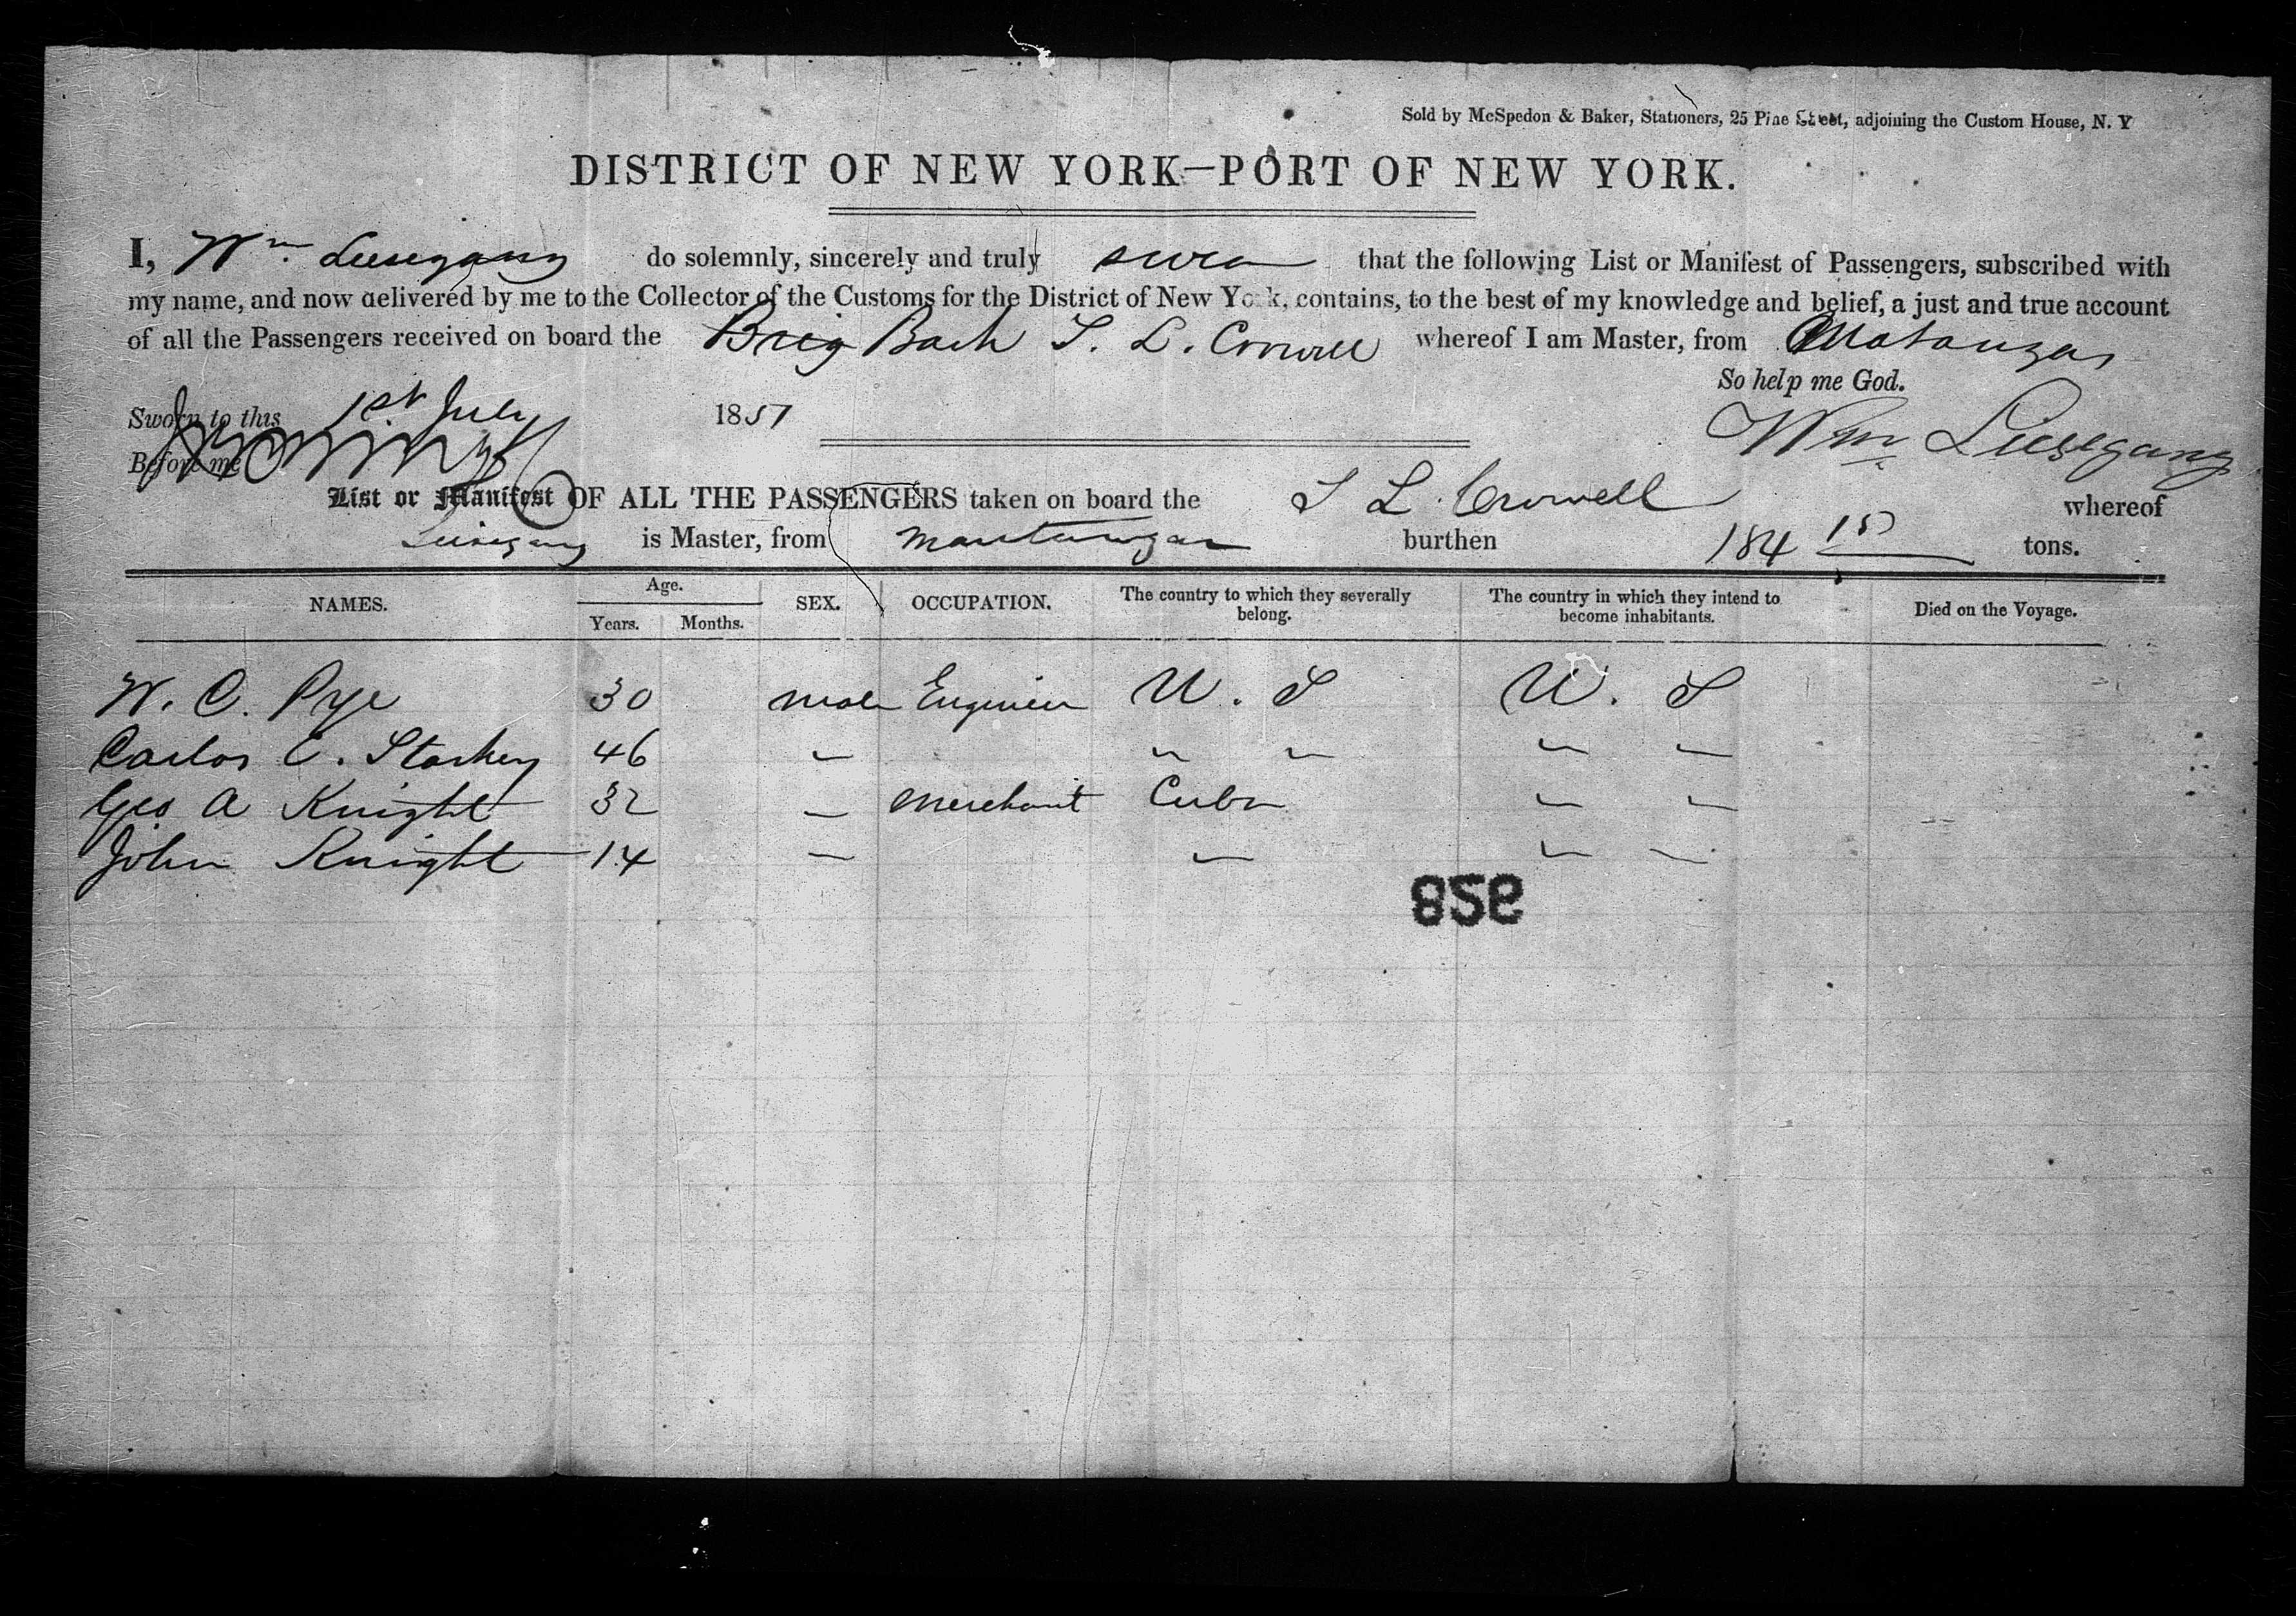 Sold by McSpedon & Baker, Stationers, 25 Pine Street, adjoining the Custom House, N. Y
DISTRICT OF NEW YORK—PORT OF NEW YORK.
I, Wm. Liesegang do solemnly, sincerely and truly swear that the following List or Manifest of Passengers, subscribed with
my name, and now delivered by me to the Collector of the Customs for the District of New York, contains, to the best of my knowledge and belief, a just and true account
of all the Passengers received on board the Brig Bark S. L. Crowell whereof I am Master, from Matanzas
So help me God.
Sworn to this 1st July 1857
Wm Liesegang
Before me
List or Manifest OF ALL THE PASSENGERS taken on board the S L. Crowell whereof
Liesegang is Master, from Mantanzas burthen 184 tons.
NAMES. Age. Years. Months. SEX. OCCUPATION. The country to which they severally belong. The country in which they intend to become inhabitants. Died on the Voyage.
W. C. Pye 30 male Engineer U. S U. S
Carlos C. Starkey 46 " " " " "
Geo A Knight 32 " Merchant Cuba " "
John Knight 14 " " " "
826